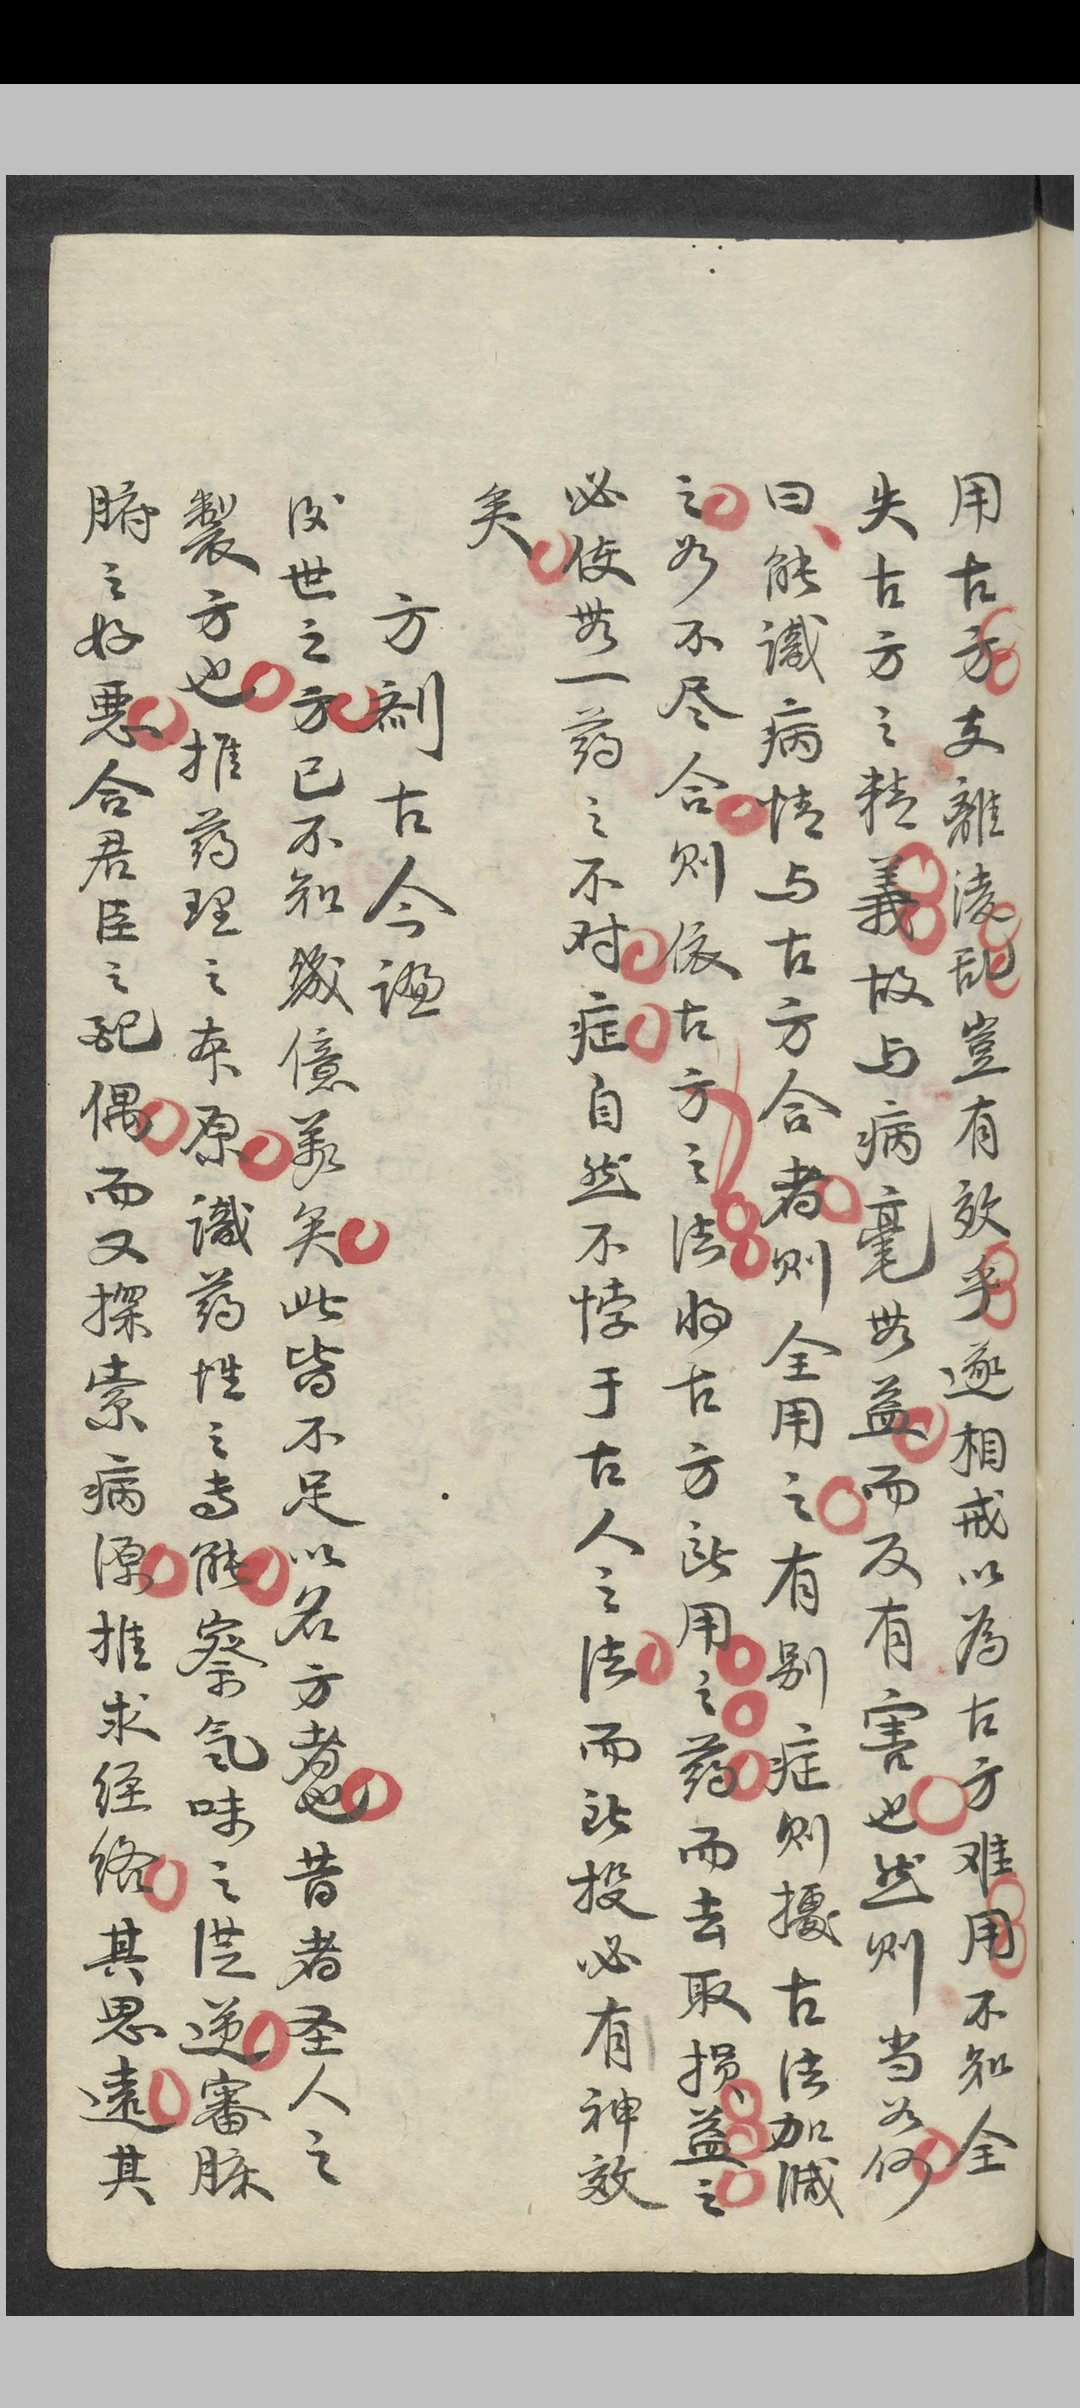 用古方支離淩乱豈有效乎遂相戒以為古方难用不知全
失古方之精義故与病毫无益而反有害也然则当如何
曰能識病情与古方合者则全用之有别症则擾古法加減
之如不尽合则依古方之法将古方所用之药而去取损益之
必使无一药之不对症自然不悖于古人之法而所投必有神效
矣
方剤古今論
後世之方已不知幾億萬矣此皆不足以名方者也昔者圣人之
製方也推药理之本原識药性之専能察氣味之從逆審脉
腑之好悪合君臣之配偶而又探索病源推求经络其思遠其